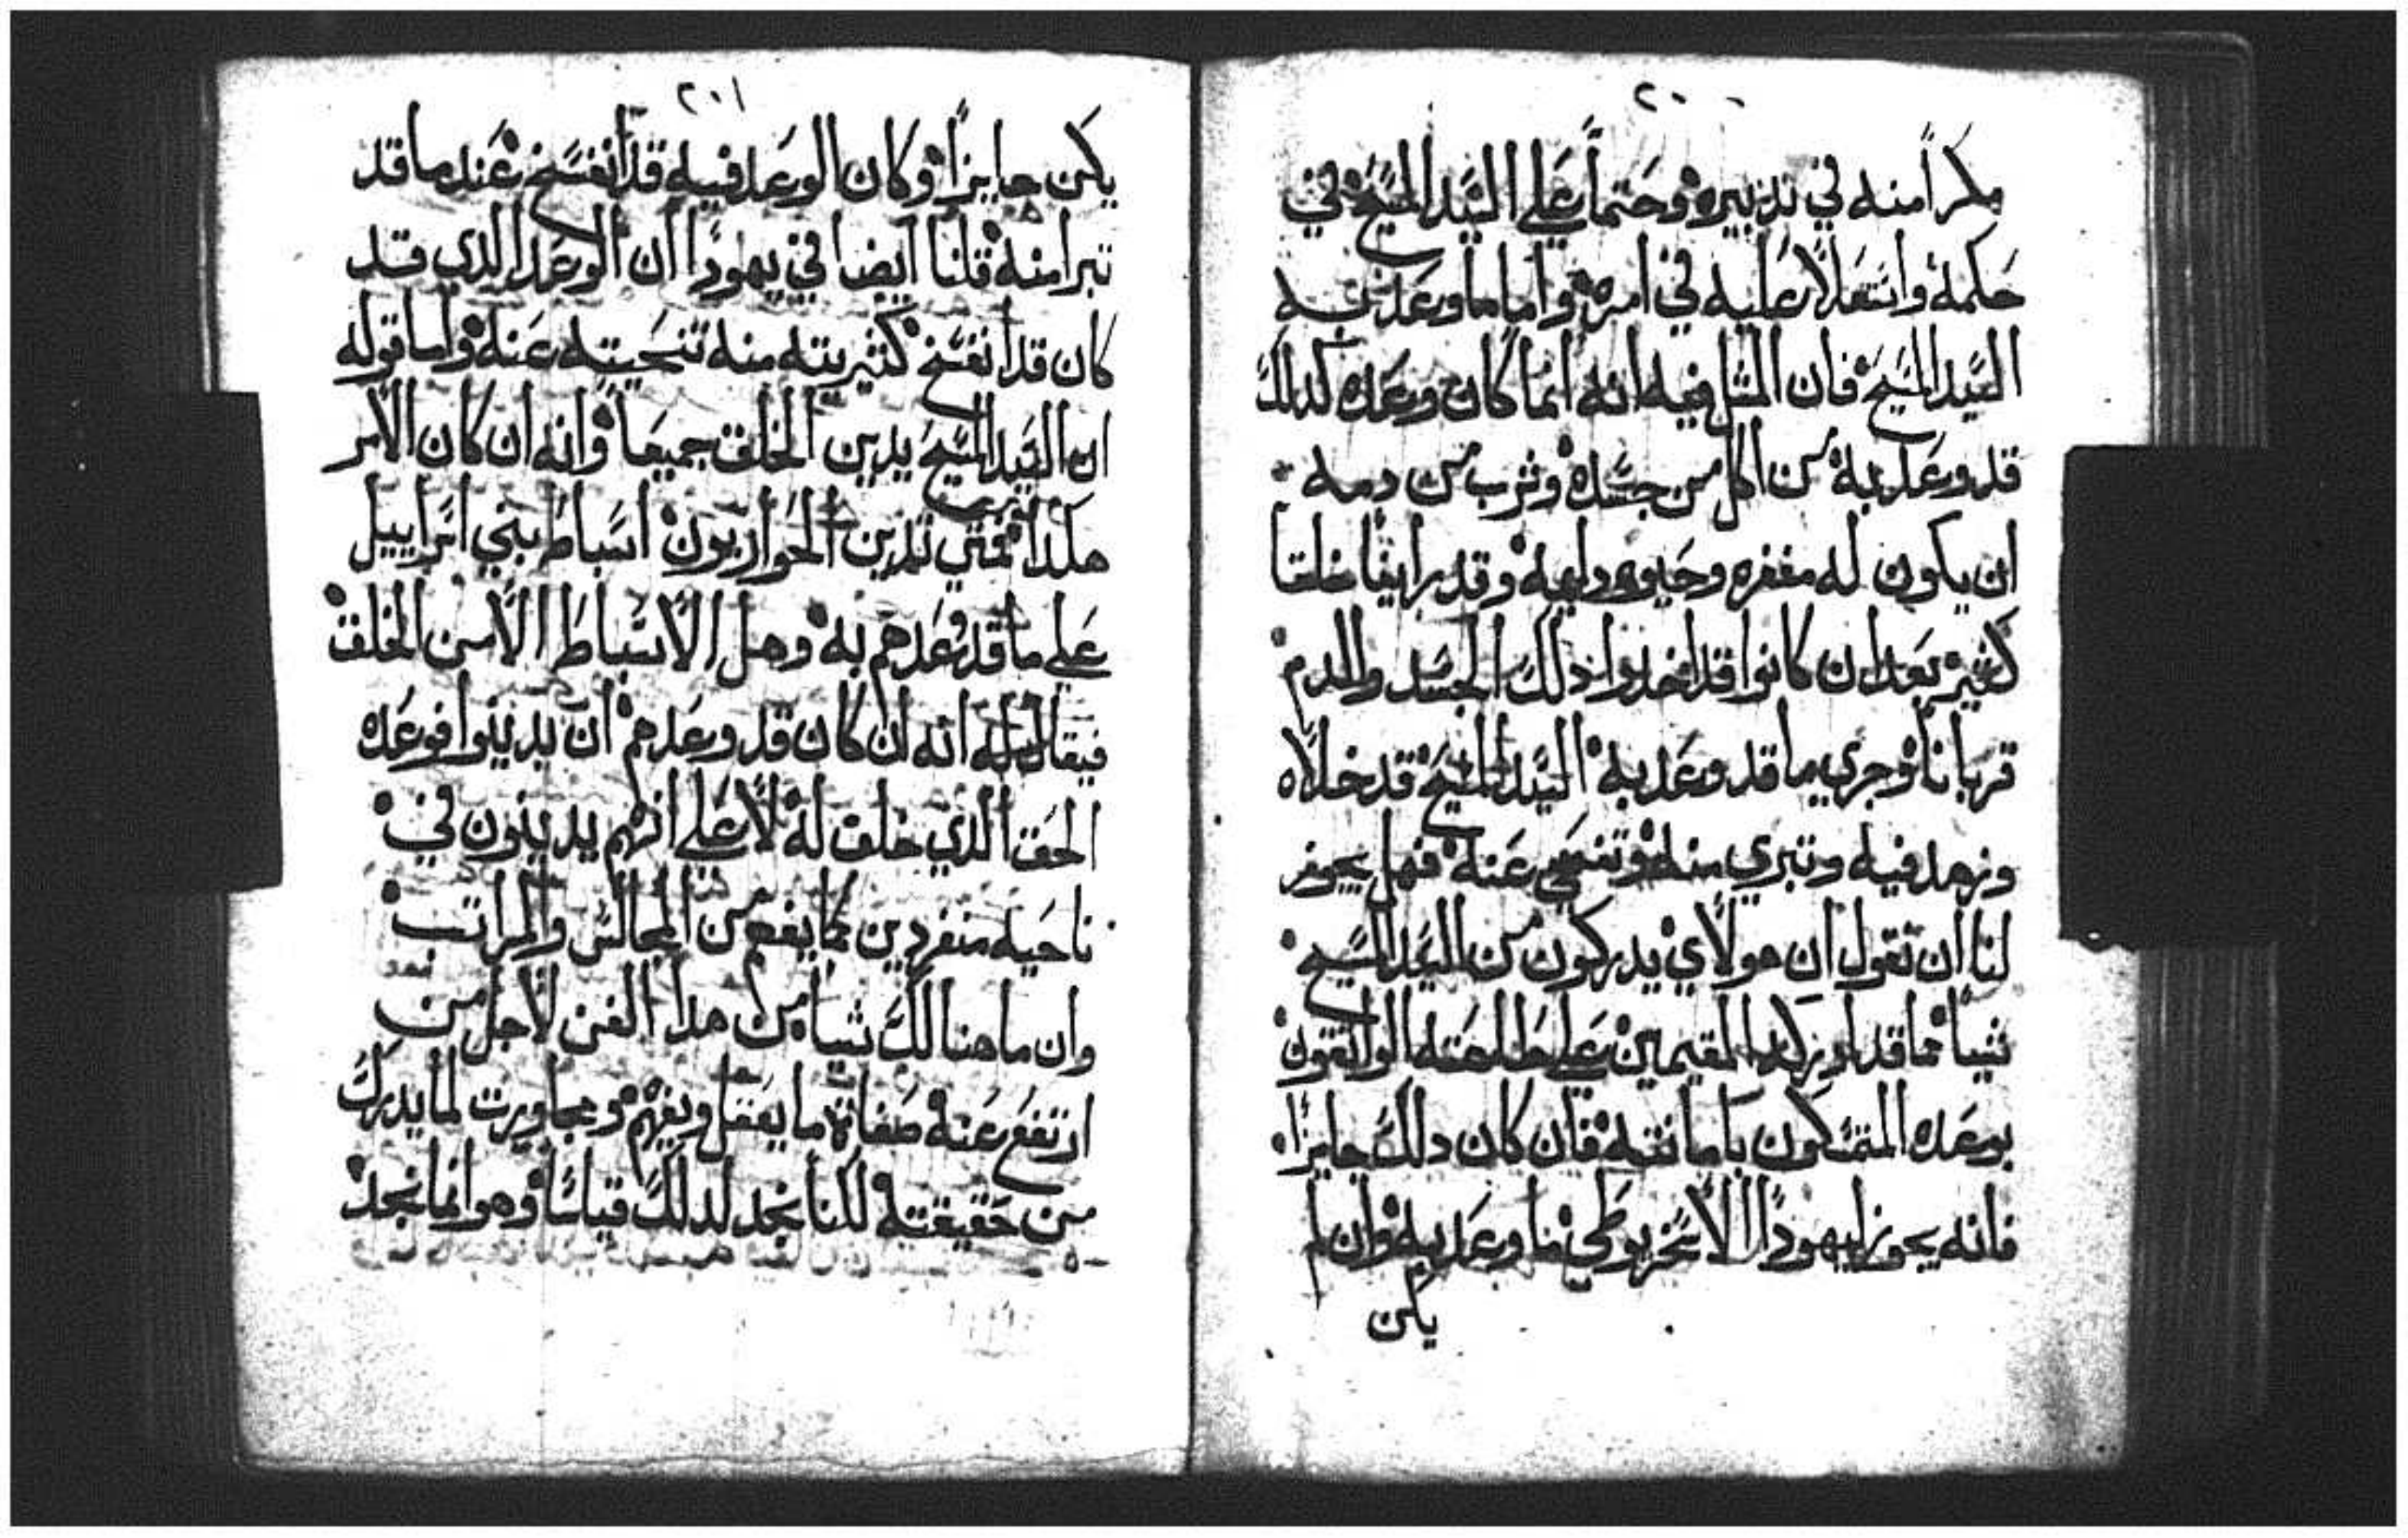 ٢٠٠
مكرًا منه في تدبيره وحتمًا على السيد المسيح في
حكمه واستعلاءً عليه في امره واما ما وعد به
السيد المسيح فان المثل فيه انه انما كان وعده كدلك
قد وعد به من اكل من جسده وشرب من دمه
ان يكون له مغفره وحيوه دايمه وقد راينا خلقا
كثير بعد ان كانوا قد اخدوا دلك الجسد والدم
قربانا وجري ما قد وعد به السيد المسيح قد خلاه
وزهد فيه وتبري منه وتنحي عنه فهل يجوز
لنا ان نقول ان هولاي يدركون من السيد المسيح
شيا مما قد المقيمين على طاعته الواثقون
بوعده المتمسكون بامانته فان كان دلك جايزًا
فانه يجوز ليهودا الاسخريوطي ما وعد به وان لم
يكن
٢٠١
يكن جايزًا وكان الوعد فيه قد انفسخ عند ما قد
تبرا منه قلنا ايضا في يهودا ان الوعد الدي قد
كان قد انفسخ منه عنه واما قوله
ان السيد المسيح يدين الخلق جميعًا وانه ان كان الامر
هكدا فمتي تدين الحواريون اسباط بني اسراييل
على ما قد وعدهم به وهل الاسباط الا من الخلق
فيقال له انه ان كان قد وعدهم ان يدينوا فوعده
الحق الدي خلق له لا على انهم يدينون في
ناحيه منفردين كما يفهم من المجالس والمراتب
وان ما هنالك شيا من هدا الفن لاجل من
ارتفع عنه صفاة ما يعقل ويفهم وتجاوزت لما يدرك
من حقيقته لكنا نجد لدلك قياسًا وهو انما نجد